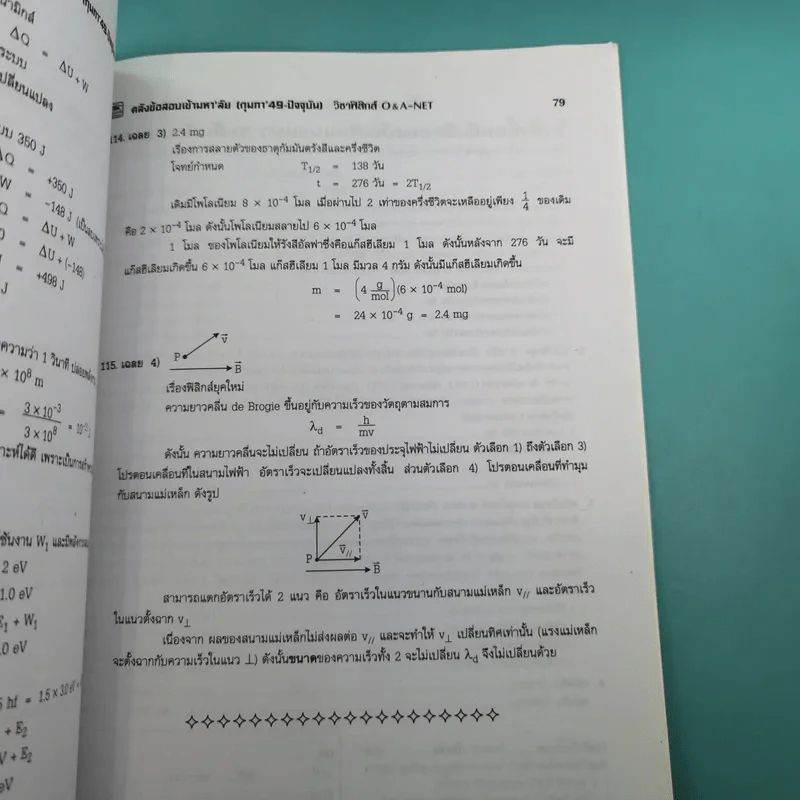 ามิกส์
ΔQ = ΔU + W
ระบบ
ปลี่ยนแปลง
บบ 350 J
ΔQ = +350 J
W = −148 J
Q = ΔU + W
ΔU + (−148)
+498 J
ความว่า 1 วินาที
× 10⁸ m
= 3 × 10⁻³ / 3 × 10⁸
าะห์ได้ดี เพราะเป็นการ
ชันงาน W₁
2 eV
1.0 eV
E₁ + W₁
.0 eV
hf = 1.5 × 3.0 eV
+ E₂
V + E₂
eV
คลังข้อสอบเข้ามหา'ลัย (กุมภา'49-ปัจจุบัน) วิชาฟิสิกส์ O&A-NET 79
114. เฉลย 3) 2.4 mg
เรื่องการสลายตัวของธาตุกัมมันตรังสีและครึ่งชีวิต
โจทย์กำหนด T1/2 = 138 วัน
t = 276 วัน = 2T1/2
เดิมมีโพโลเนียม 8 × 10⁻⁴ โมล เมื่อผ่านไป 2 เท่าของครึ่งชีวิตจะเหลืออยู่เพียง 1/4 ของเดิม
คือ 2 × 10⁻⁴ โมล ดังนั้นโพโลเนียมสลายไป 6 × 10⁻⁴ โมล
1 โมล ของโพโลเนียมให้รังสีอัลฟาซึ่งคือแก๊สฮีเลียม 1 โมล ดังนั้นหลังจาก 276 วัน จะมี
แก๊สฮีเลียมเกิดขึ้น 6 × 10⁻⁴ โมล แก๊สฮีเลียม 1 โมล มีมวล 4 กรัม ดังนั้นมีแก๊สฮีเลียมเกิดขึ้น
m = (4 g/mol)(6 × 10⁻⁴ mol)
= 24 × 10⁻⁴ g = 2.4 mg
115. เฉลย 4) P v⃗
B⃗
เรื่องฟิสิกส์ยุคใหม่
ความยาวคลื่น de Brogie ขึ้นอยู่กับความเร็วของวัตถุตามสมการ
λd = h/mv
ดังนั้น ความยาวคลื่นจะไม่เปลี่ยน ถ้าอัตราเร็วของประจุไฟฟ้าไม่เปลี่ยน ตัวเลือก 1) ถึงตัวเลือก 3)
โปรตอนเคลื่อนที่ในสนามไฟฟ้า อัตราเร็วจะเปลี่ยนแปลงทั้งสิ้น ส่วนตัวเลือก 4) โปรตอนเคลื่อนที่ทำมุม
กับสนามแม่เหล็ก ดังรูป
v⊥ v⃗
v⃗//
P
B⃗
สามารถแตกอัตราเร็วได้ 2 แนว คือ อัตราเร็วในแนวขนานกับสนามแม่เหล็ก v// และอัตราเร็ว
ในแนวตั้งฉาก v⊥
เนื่องจาก ผลของสนามแม่เหล็กไม่ส่งผลต่อ v// และจะทำให้ v⊥ เปลี่ยนทิศเท่านั้น (แรงแม่เหล็ก
จะตั้งฉากกับความเร็วในแนว ⊥) ดังนั้นขนาดของความเร็วทั้ง 2 จะไม่เปลี่ยน λd จึงไม่เปลี่ยนด้วย